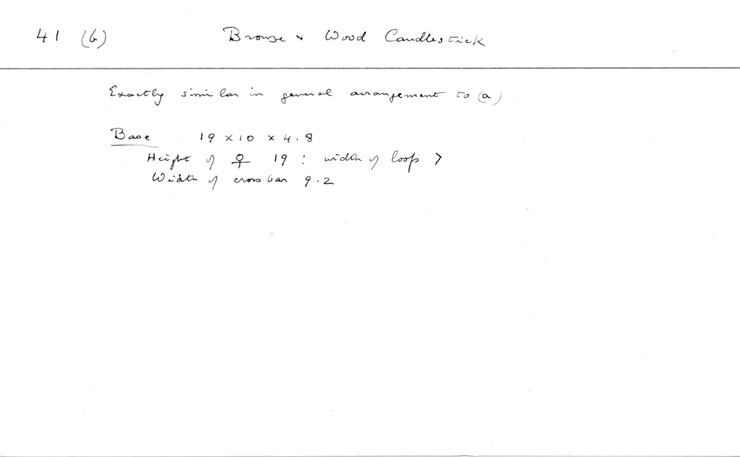 41 (b) Bronze + Wood Candlestick
Exactly similar in general arrangement to (a)
Base 19 x 10 x 4.8
Height of ♀ 19 : width of loop 7
Width of crossbar 9.2